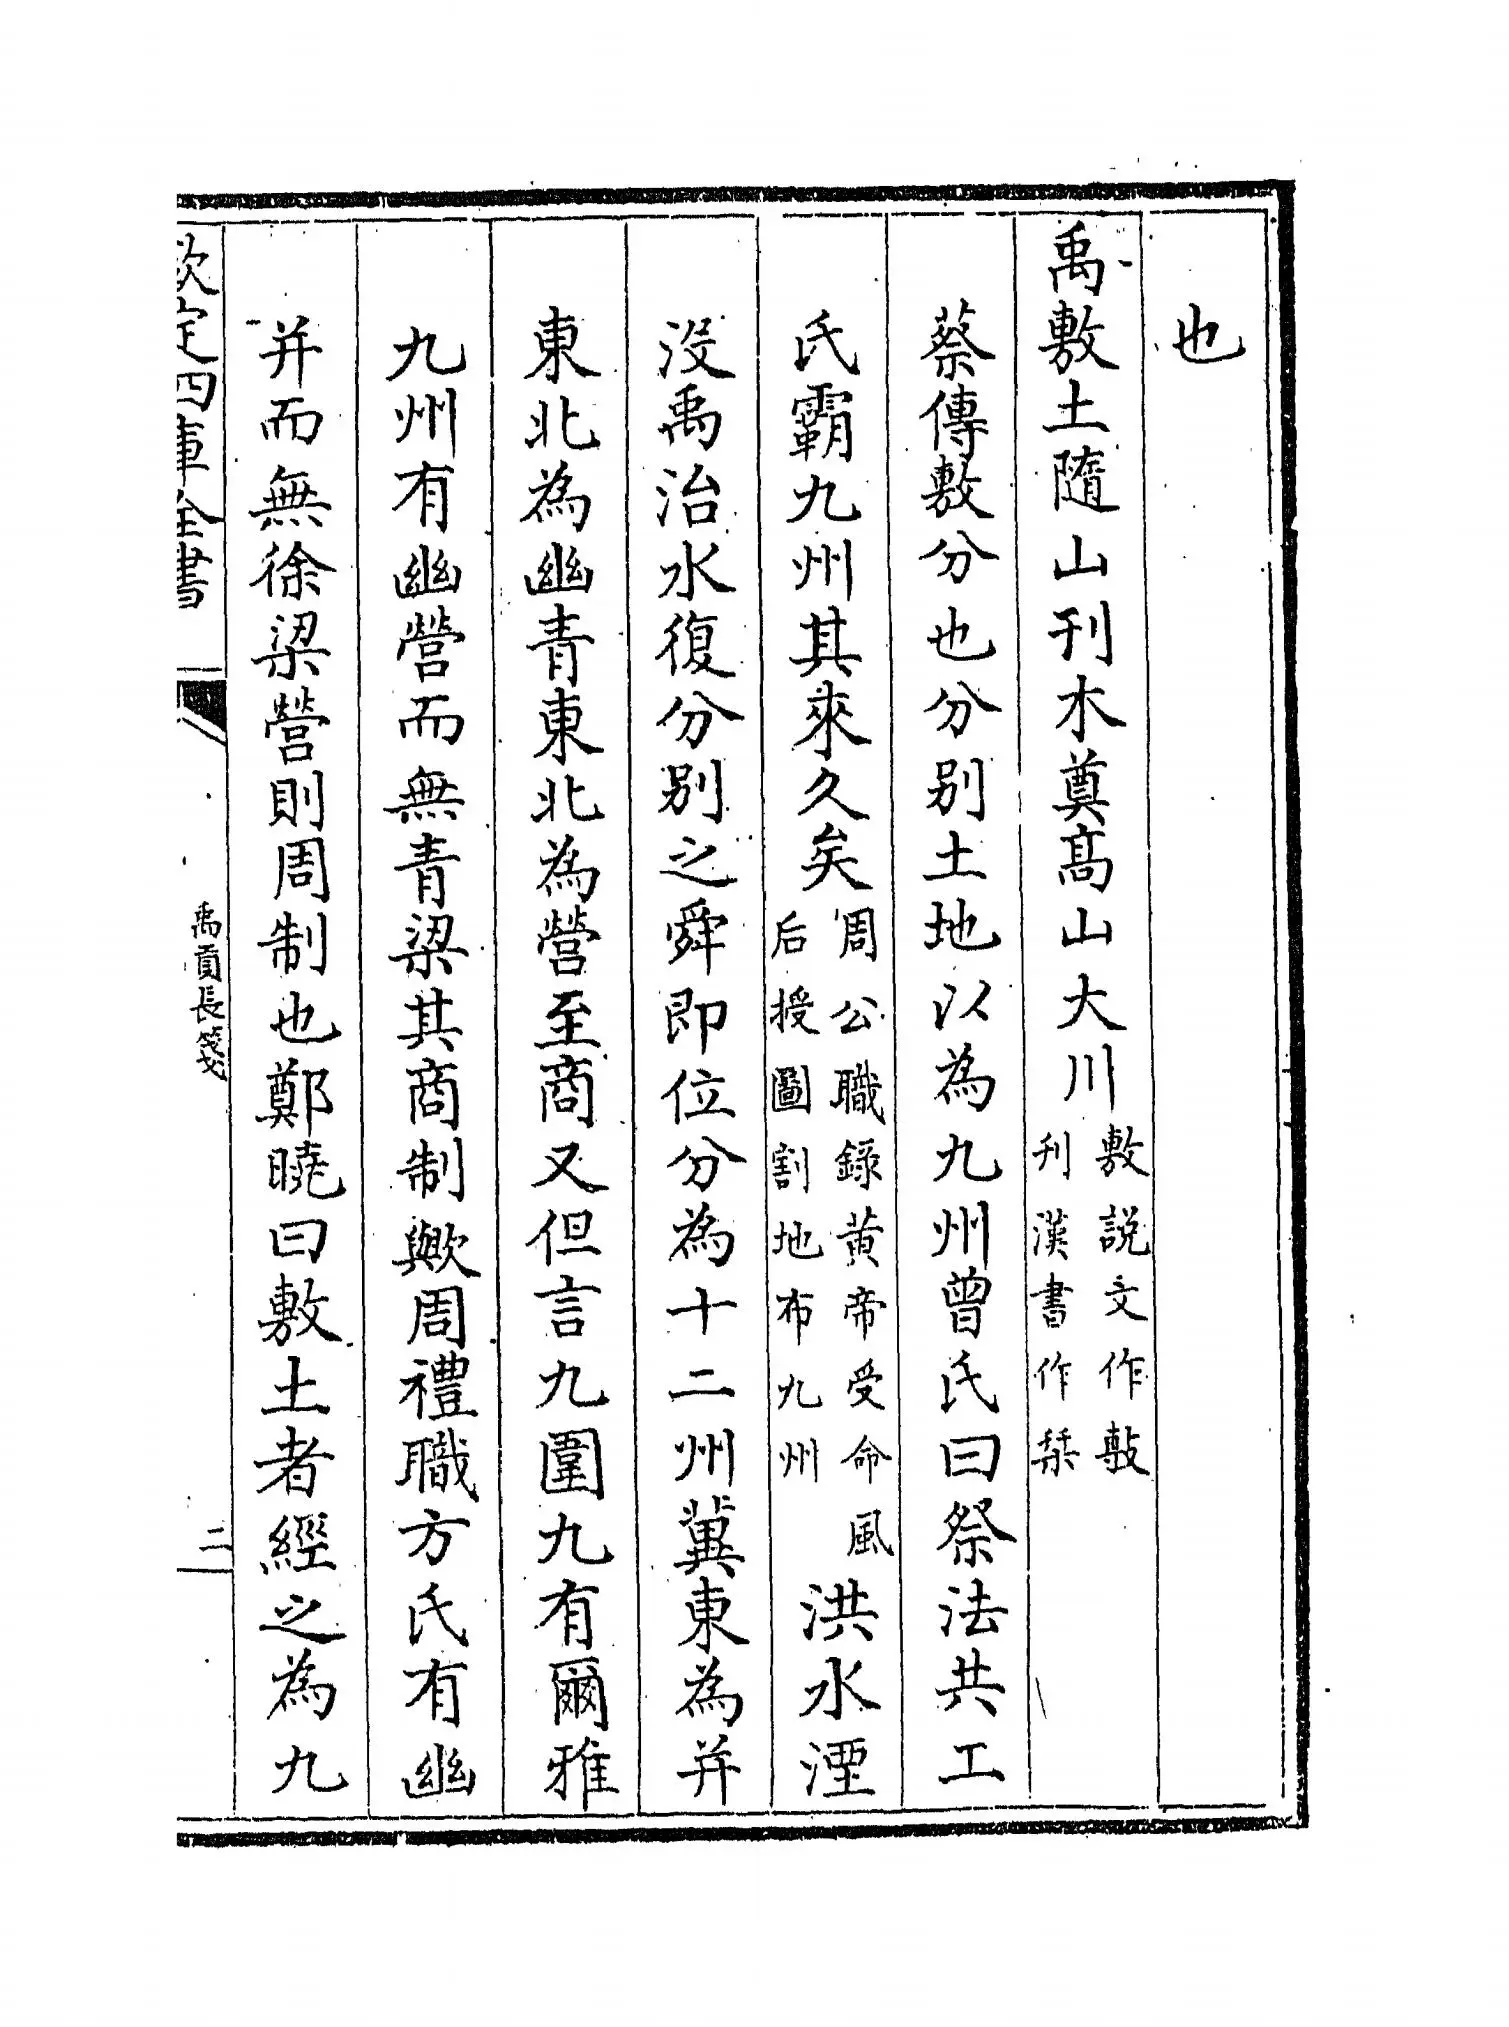 也
禹敷土隨山刋木奠髙山大川敷說文作敷刋漢書作栞
蔡傳敷分也分别土地以為九州曾氏曰祭法共工
氏霸九州其來久矣周公職錄黄帝受命風后授圖割地布九州洪水湮
没禹治水復分别之舜即位分為十二州冀東為并
東北為幽青東北為營至商又但言九圍九有爾雅
九州有幽營而無青梁其商制歟周禮職方氏有幽
并而無徐梁營則周制也鄭曉曰敷土者經之為九
欽定四庫全書
禹貢長箋
二